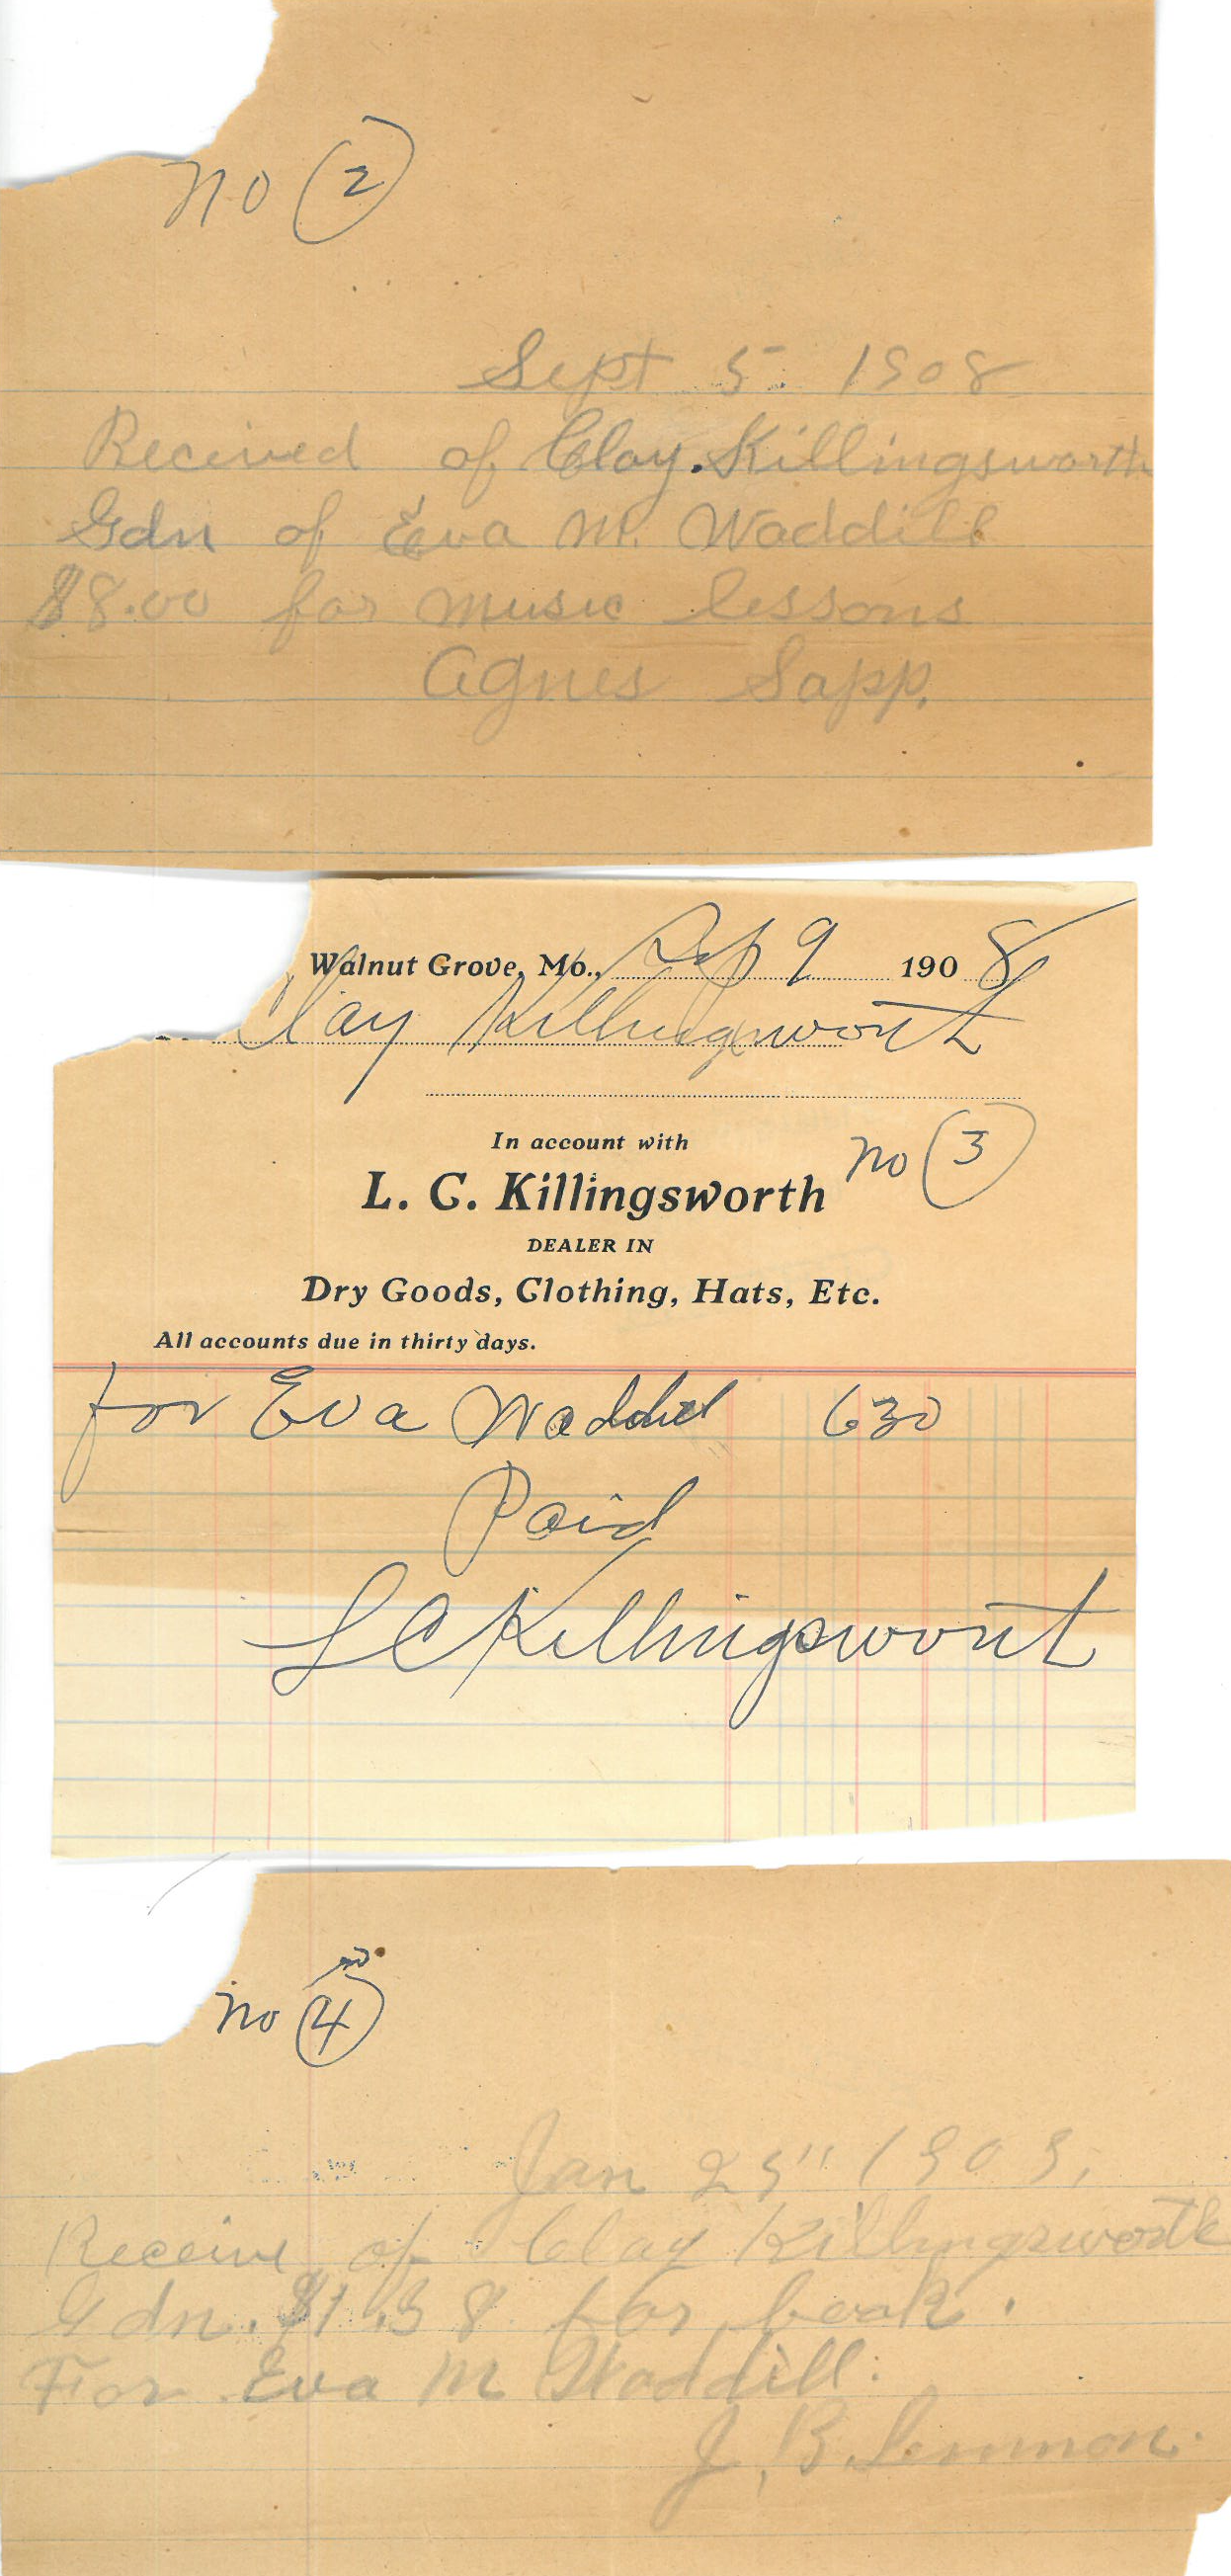 no (2)
Sept 5. 1908
Recieved of Clay. Killingsworth
Gdn of Eva M. Waddill
$8.00 for music lessons
Agnes Sapp.
Walnut Grove, Mo., Sep 9 1908
Clay Killingswort
In account with
no (3)
L. C. Killingsworth
DEALER IN
Dry Goods, Clothing, Hats, Etc.
All accounts due in thirty days.
for Eva Waddill 630
Paid
L C Killingswort
no (4)
Jan 25" 1909,
Receive of Clay Killingsworth
Gdn. $1.38 for book.
For Eva M Waddill.
J. B. Lemmon.